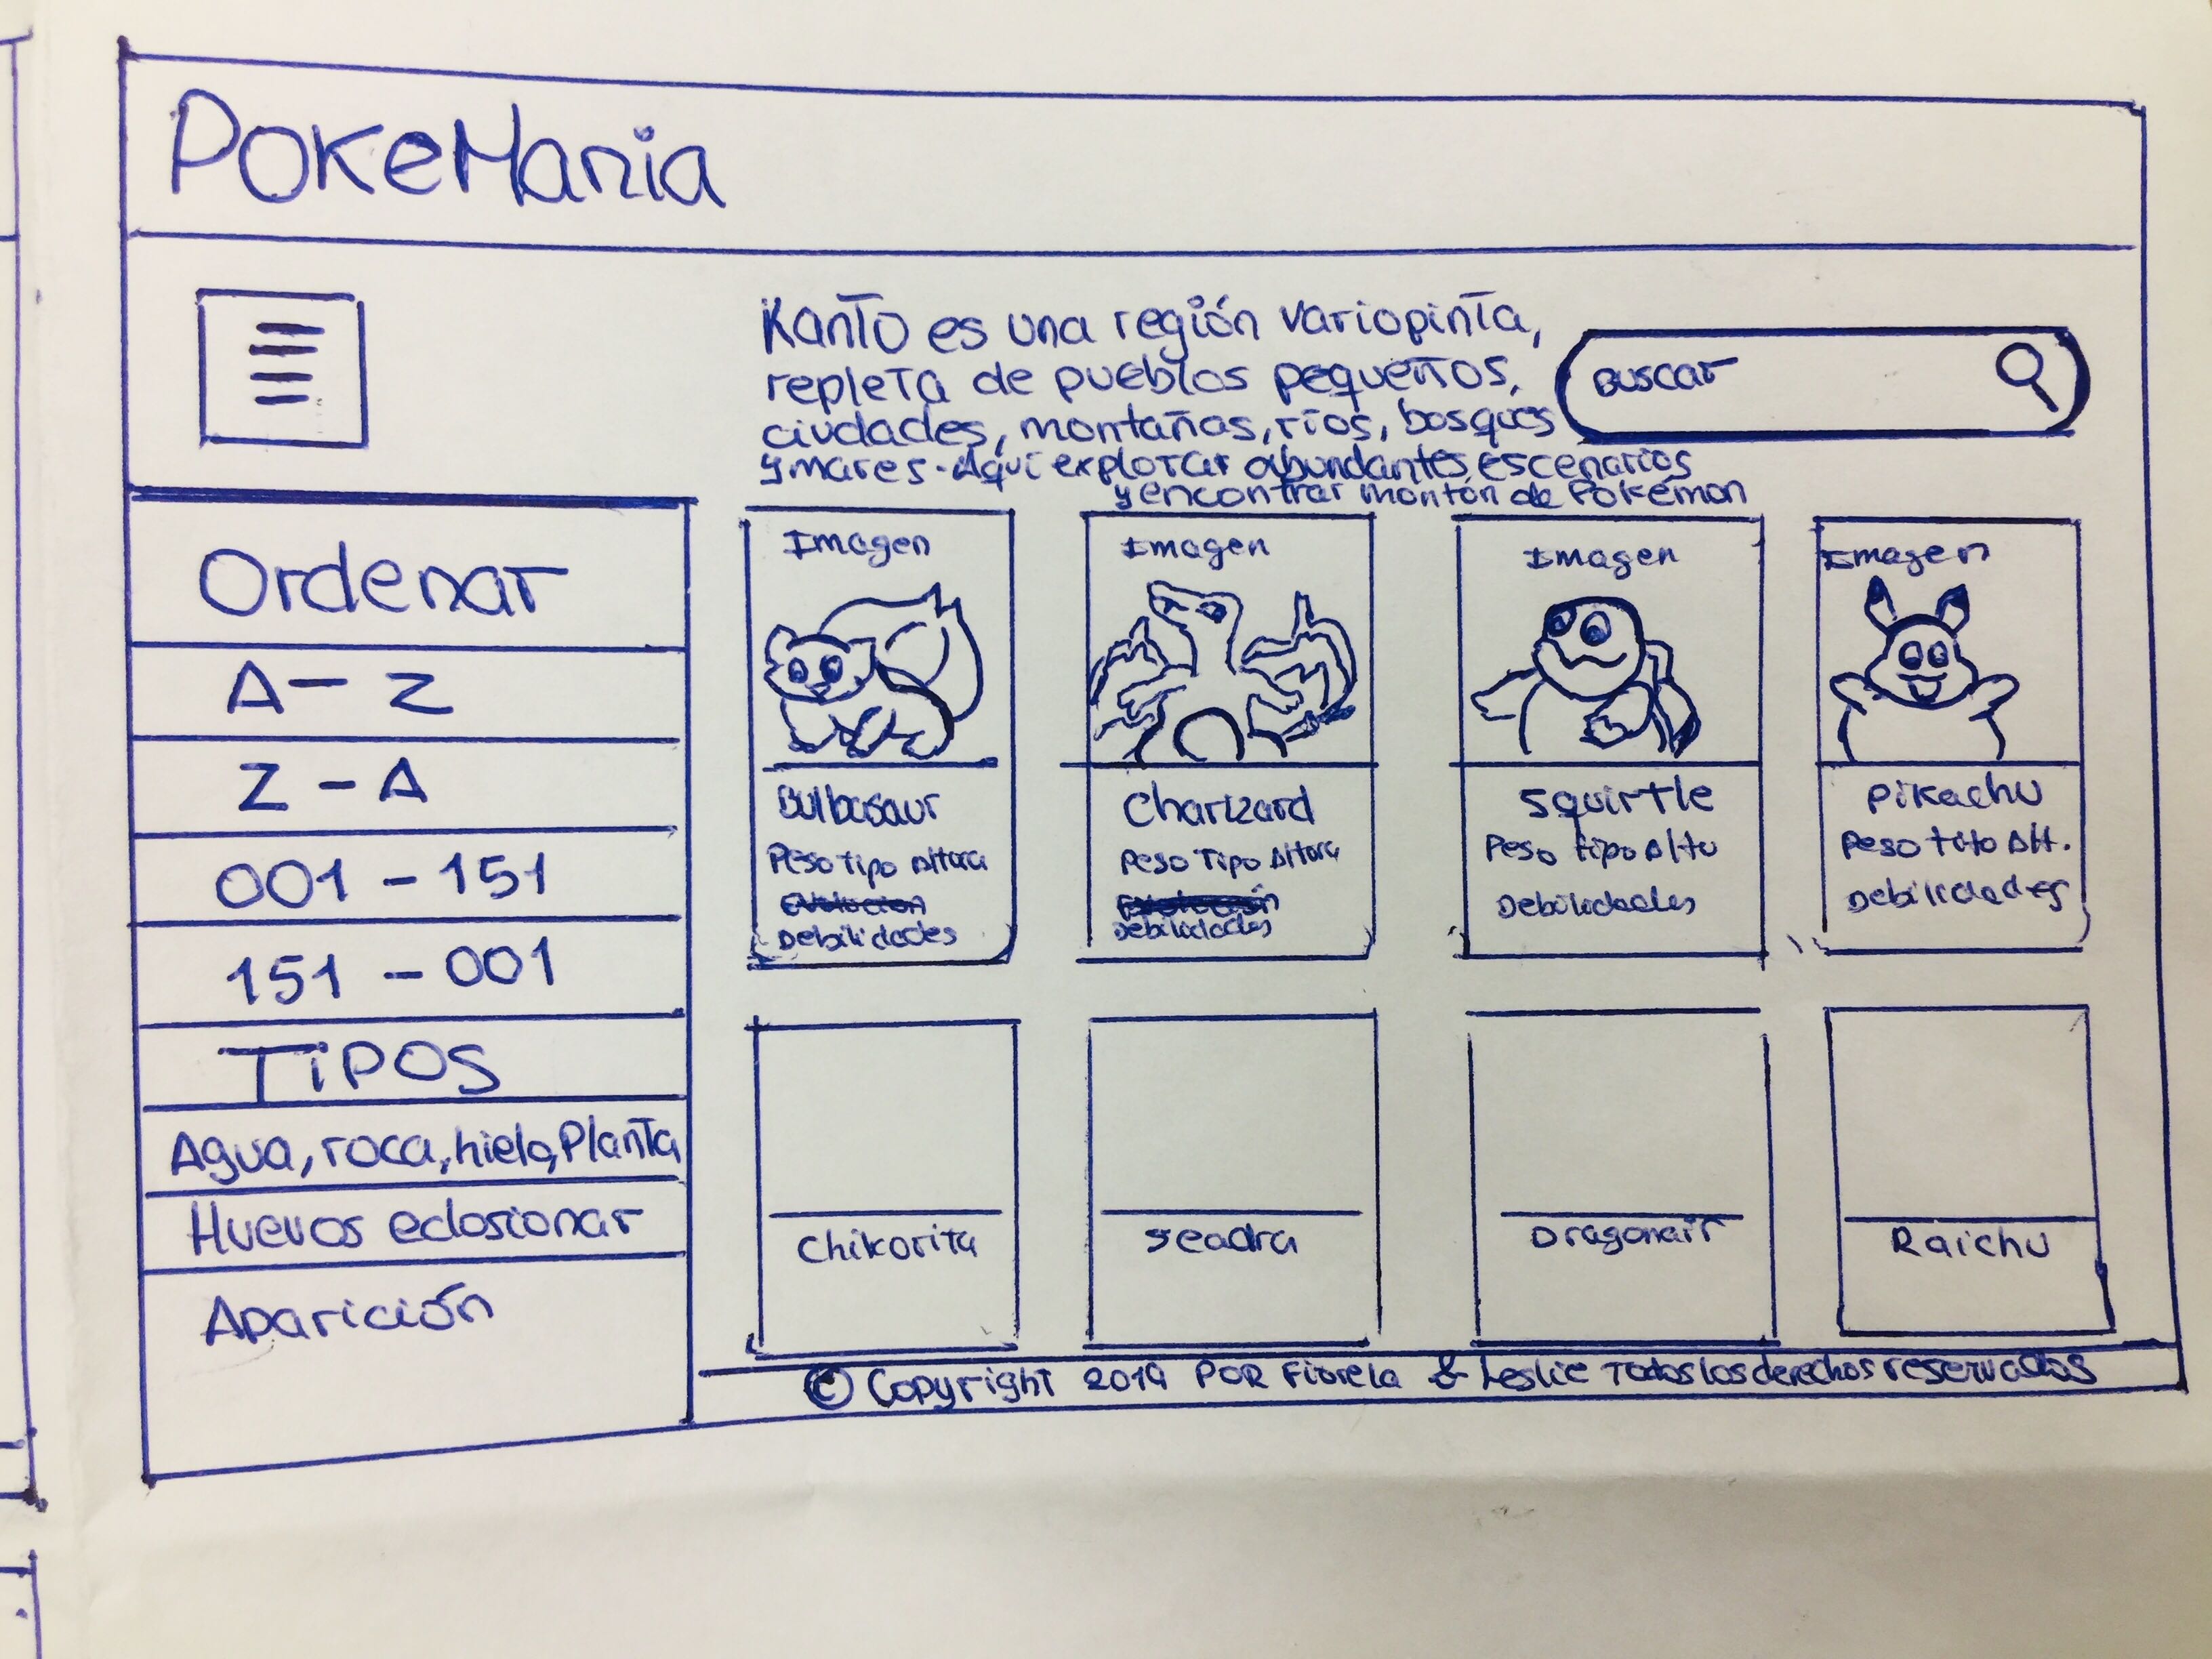 PokeMania
Kanto es una región variopinta,
repleta de pueblos pequeños,
ciudades, montañas, ríos, bosques
y mares. Aquí explorar abundantes escenarios
y encontrar montón de Pokémon
Buscar
Ordenar
A - Z
Z - A
001 - 151
151 - 001
Tipos
Agua, roca, hielo, Planta
Huevos eclosionar
Aparición
Imagen
Bulbasaur
Peso Tipo Altura
Evolucion
Debilidades
Imagen
Charizard
Peso Tipo Altura
Evolución
Debilidades
Imagen
Squirtle
Peso tipo Altu
Debilidades
Imagen
Pikachu
Peso Alt.
Debilidades
Chikorita
Seadra
Dragonair
Raichu
© Copyright 2019 POR Fiorela & Leslie Todos los derechos reservados